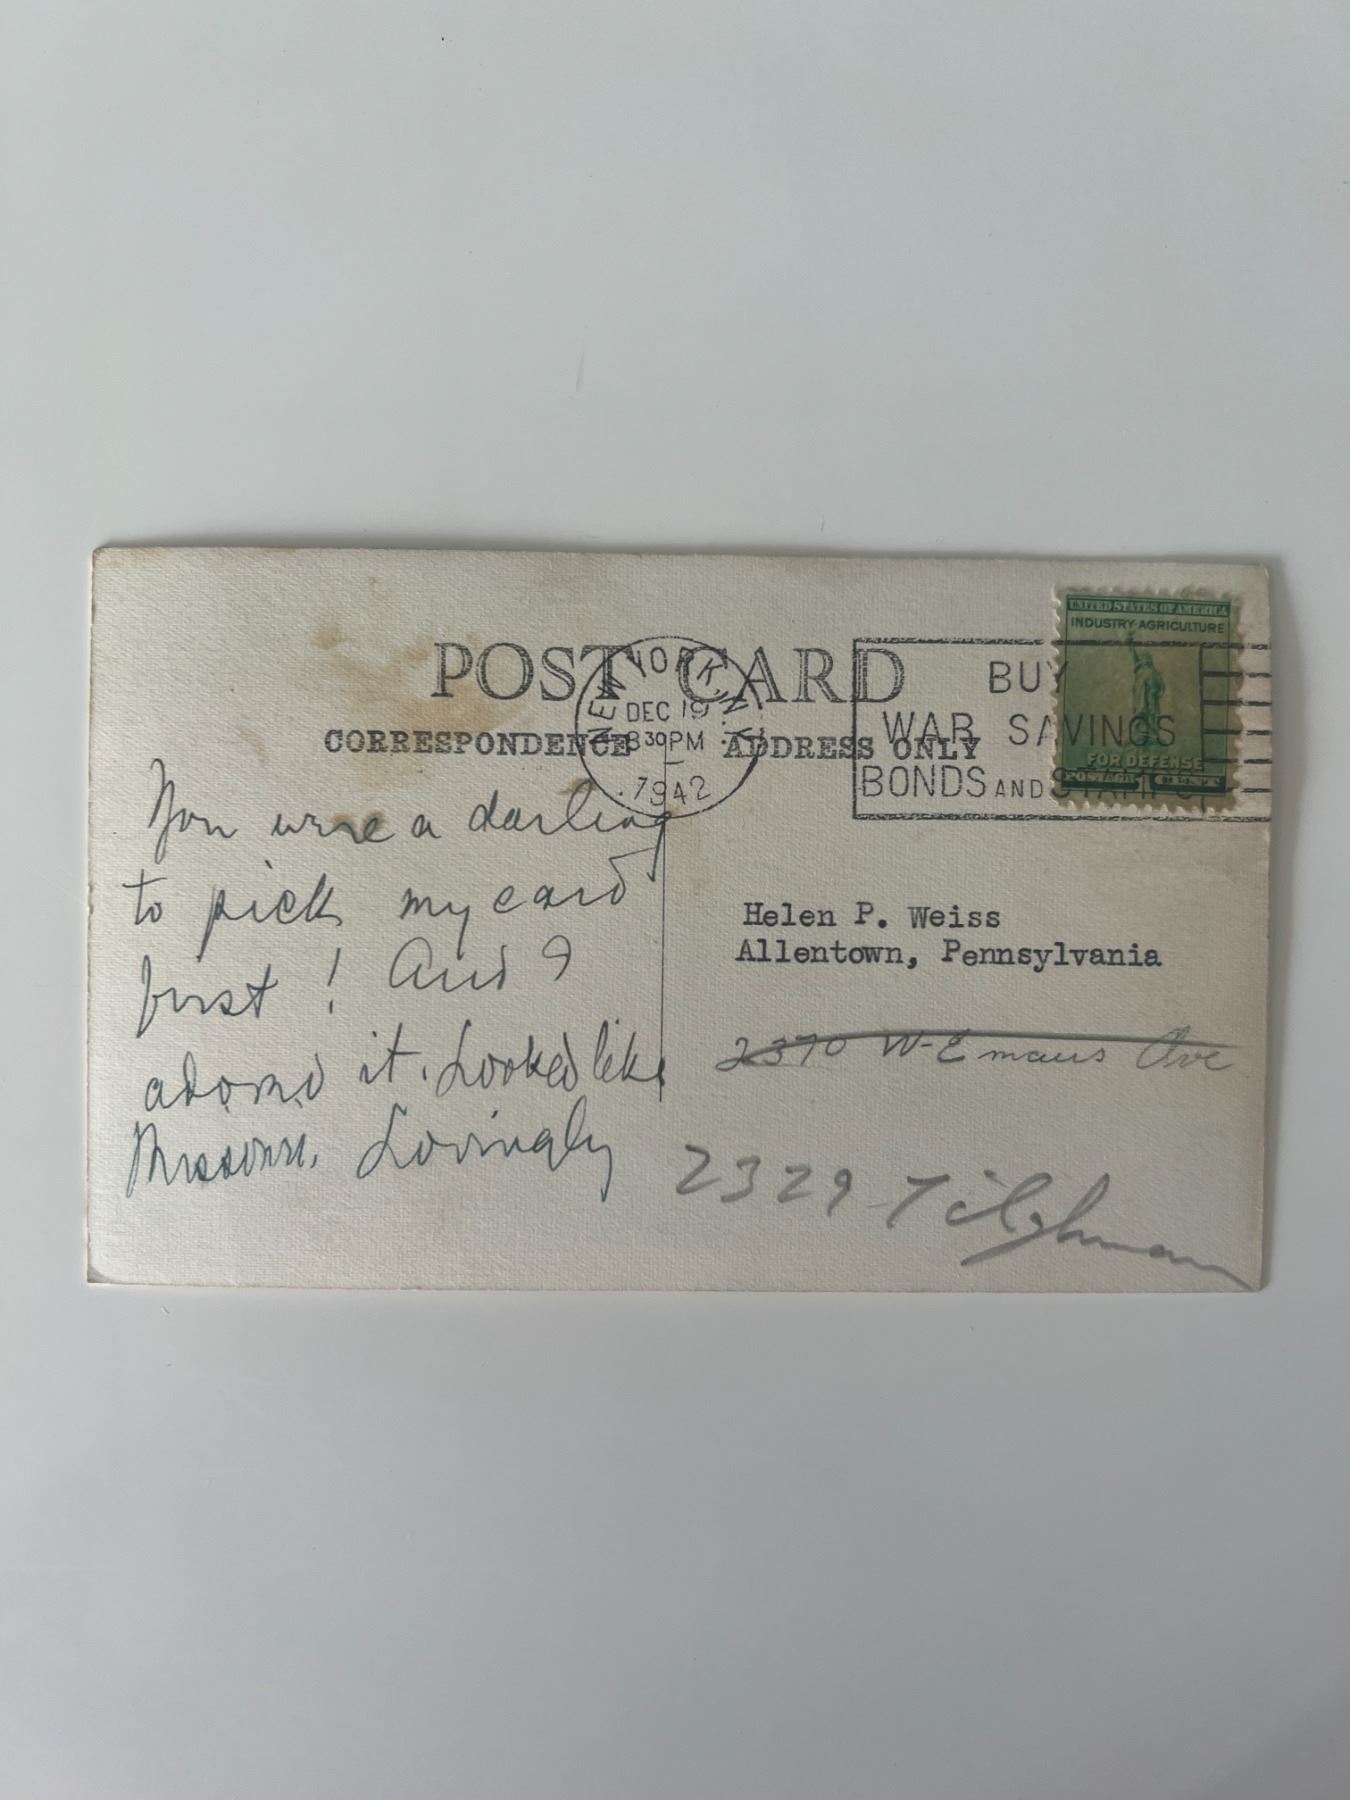 UNITED STATES OF AMERICA
INDUSTRY AGRICULTURE
FOR DEFENSE
POSTAGE 1 CENT
POST CARD
CORRESPONDENCE ADDRESS ONLY
NEW YORK, N.Y.
DEC 19
830PM
1942
BUY
WAR SAVINGS
BONDS AND STAMPS
You were a darling
to pick my card
first! And I
adored it. Looked like
Missouri. Lovingly
Helen P. Weiss
Allentown, Pennsylvania
2370 W-Emaus Ave
2329 Tilghman